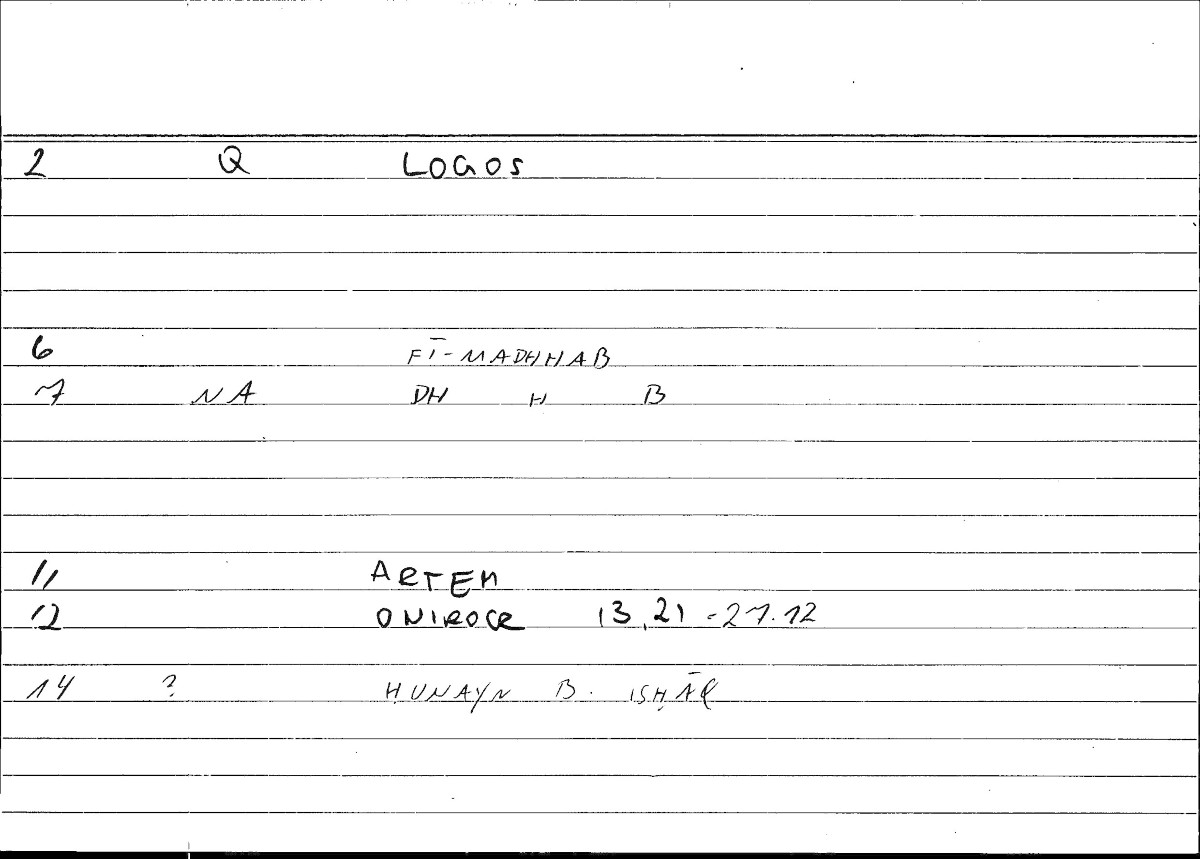 2 Q LOGOS
6 FĪ-MADHHAB
7 NA DH H B
11 ARTEM
12 ONIROCR 13,21-27.12
14 ? ḤUNAYN B. ISḤĀQ